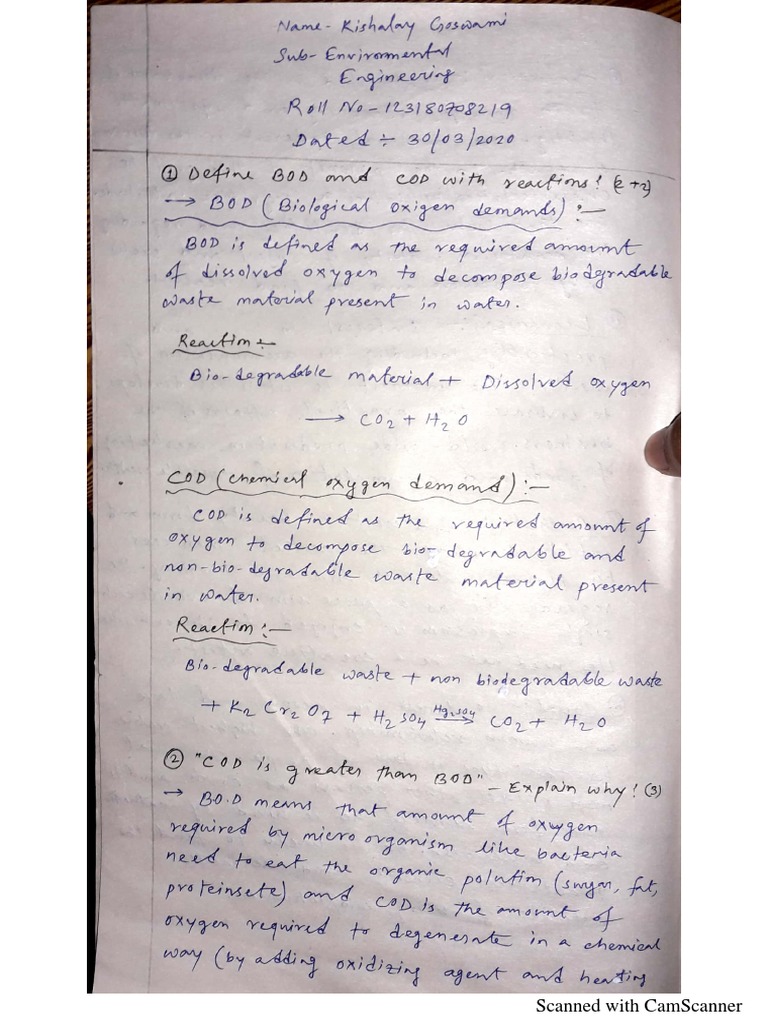 Name- Kishalay Goswami
Sub- Environmental
Engineering
Roll No - 123180708219
Dated ÷ 30/03/2020
① Define BOD and COD with reactions! (2+2)
→ BOD (Biological oxigen demands) :-
BOD is defined as the required amount
of dissolved oxygen to decompose biodgradable
waste material present in water.
Reaction:-
Bio-degradable material + Dissolved oxygen
→ CO2 + H2O
COD (chemical oxygen demand) :-
COD is defined as the required amount of
oxygen to decompose bio-degradable and
non-bio-degradable waste material present
in water.
Reaction :-
Bio-degradable waste + non biodegradable waste
+ K2 Cr2 O7 + H2 SO4 Hg2SO4→ CO2 + H2O
② "COD is greater than BOD" - Explain why! (3)
→ BO.D means that amount of oxygen
required by micro organism like bacteria
need to eat the organic polution (sugar, fat,
proteinsete) and COD is the amount of
oxygen required to degenerate in a chemical
way (by adding oxidizing agent and heating
Scanned with CamScanner